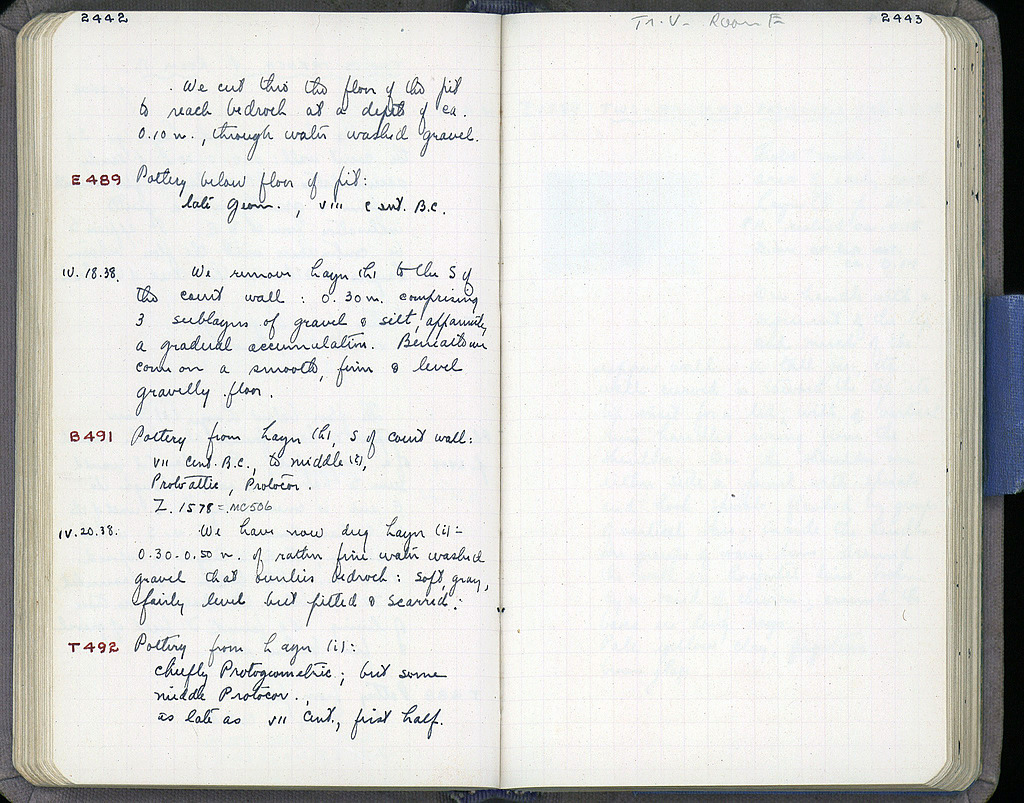 2442
. We cut thro the floor of the pit
to reach bedrock at a depth of ca.
0.10 m., through water washed gravel.
E 489 Pottery below floor of pit:
late Geom., VIII cent. B.C.
IV. 18.38. We remove layer (h) to the S of
the court wall : 0.30 m. comprising
3 sublayers of gravel & silt, apparently
a gradual accumulation. Beneath we
come on a smooth, firm & level
gravelly floor.
B 491 Pottery from layer (h), S of court wall:
VII cent. B.C., to middle (?),
Protoattic, Protocor.
Z. 1578 = MC 506
IV. 20.38. We have now dug layer (i) =
0.30-0.50 m. of rather fine water washed
gravel that overlies bedrock : soft, gray,
fairly level but pitted & scarred.
T 492 Pottery from Layer (i):
chiefly Protogeometric; but some
middle Protocor.,
as late as VII cent., first half.
Tr. V - Room E
2443